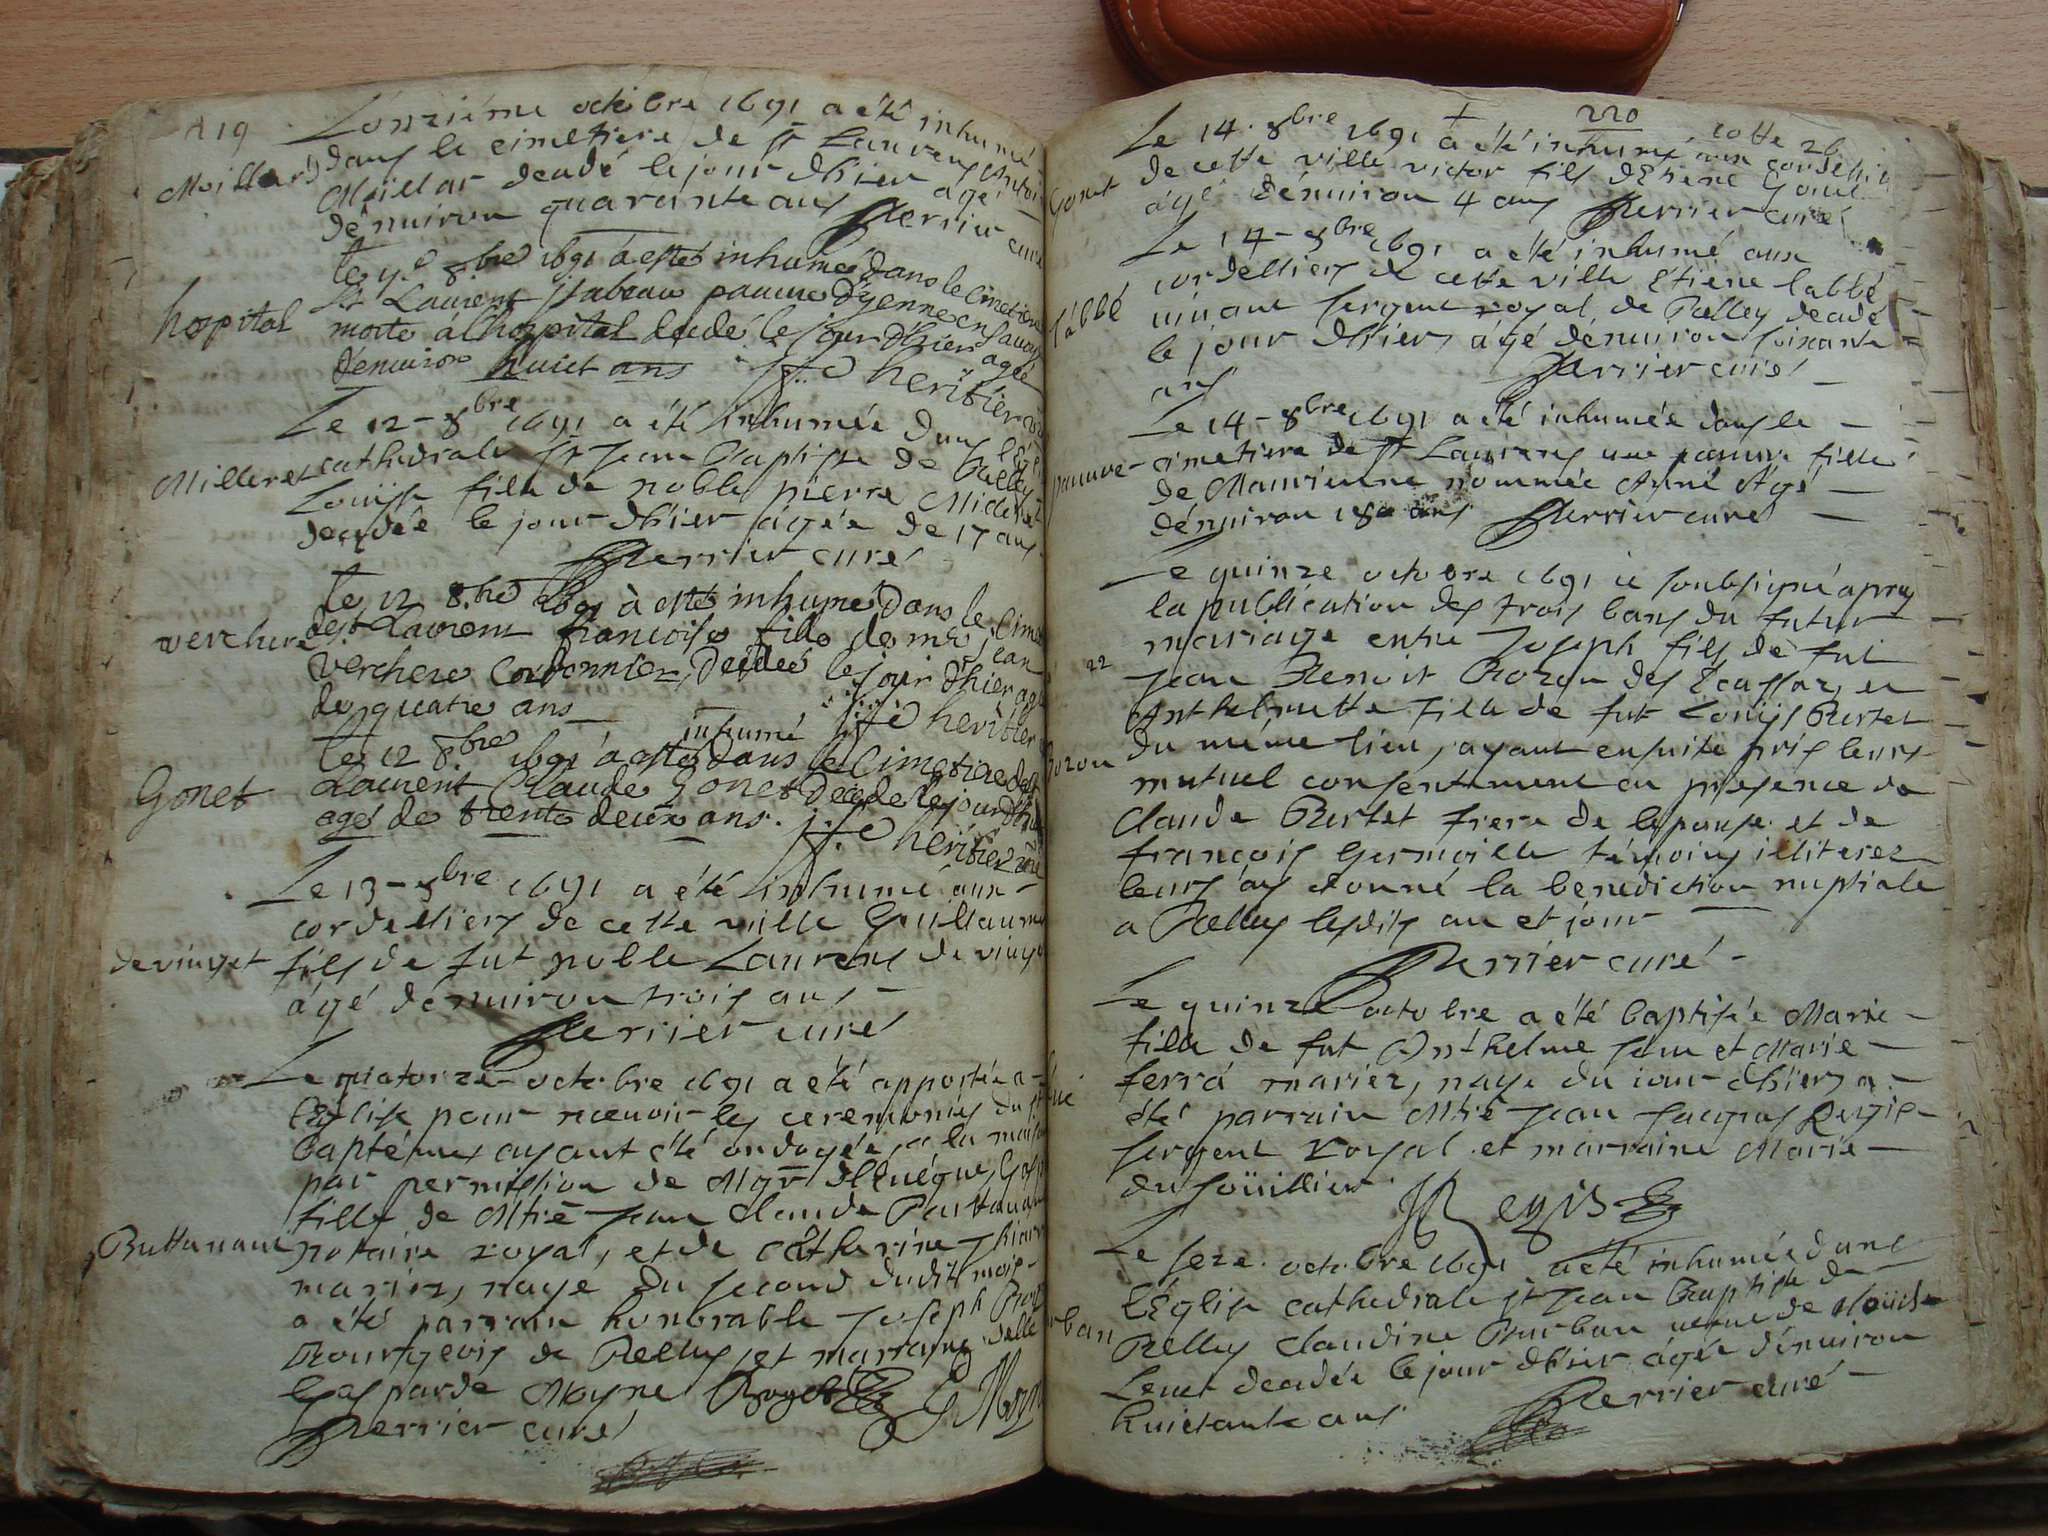 219
L'onziéme octobre 1691 a été inhumé
Moillard dans le cimetiere de st Laurens Antoi
Moillar decedé le jour d'hier agé
d'énuiron quarante ans Perrier curé
Le 11e 8.bre 1691 à esté inhumeé dans le Cimetiere
St Laurent Isabeau pauure d'yenne en Sauoy
hospital morte à l'hospital decedé le jour d'hier agée
d'enuiron huict ans heritier
Le 12 - 8bre 1691 a été inhumée dans l'égl
Milleret cathedrale st Jean Baptiste de Belley
Louïse fille de noble pierre Milleret
decedée le jour d'hier agée de 17 ans
Perrier curé
Le 12 8.bre 1691 à esté inhumeé dans le Cime
verchere de st Laurent francoise fille de me Jean
Verchere Cordonnier, decedeé le jour d'hier ageé
de quatre ans heritier
inhumé
Le 12 8bre 1691 à esté dans le Cimetiere de st
Gonet Laurent Claude Gonet decedé le jour d'hier
agé de trente deux ans. heritier
Le 13 - 8bre 1691 a été inhumé aux
cordelliers de cette ville Guillaume
de vinget fils de fut noble Laurens de ving
ágé dénuiron trois ans
Perrier curé
Le quatorze octobre 1691 a été apportée a
l'Eglise pour receuoir les ceremonies du st
baptéme ayant été ondoyée a la maison
par permission de Mgr l'Euéque, Gas
fille de Mtre Jean Claude Buttanam
Buttanam notaire royal, et de Catherine
mariez, naye du second dudit mois
a été parrain honorable Joseph
Bourgeois de Belley et marraine delle
Gasparde Moyne
Perrier curé
220
cotte 26
Le 14. 8bre 1691 a été inhumé aux cordellie
Gonet de cette ville victor fils d'Etiene Gonet
ágé dénuiron 4 ans Perrier curé
Le 14 - 8bre 1691 a été inhumé aux
cordelliers de cette ville Etiene labbé
labbé uiuant sergent royal de Belley decedé
le jour d'hier, ágé dénuiron soixante
ans Perrier curé
Le 14 - 8bre 1691 a été inhumée dans le
pauure cimetiere de st Laurens une pauure fille
de Maurienne nommée Anne Agé
dénuiron 18 ans Perrier curé
Le quinze octobre 1691 ie soubsigné apres
la publication des trois bans du futur
mariage entre Joseph fils de fut
22
Jean Benoit Bozon des Ecassaz, et
Anthelmette fille de fut Louïs Burtet
Bozon du méme lieu, ayant ensuite pris leurs
mutuel consentement en presence de
Claude Burtet frere de lepouse et de
françois Germoille témoins illiterez
leurs ay donné la benediction nuptiale
a Belley lesdits an et jour
Perrier curé
Le quinze octobre a été baptisée Marie
fille de fut Anthelme Jean et Marie
ferrá mariez, naye du iour d'hier, a
été parrain Mtre Jean Jacques Regis
sergent royal et marraine Marie
du soüillier
JJRegis
Le seze octobre 1691 a été inhumée dans
l'Église cathedrale st Jean Baptiste de
Belley Claudine Burban ueuue de Loüis
Leuet decedée le jour d'hier ágée dénuiron
huictante ans Perrier curé